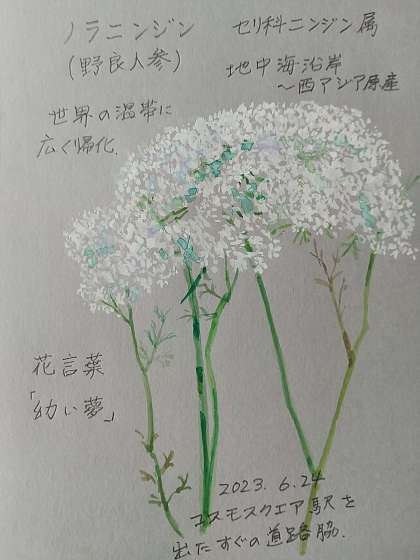 ノラニンジン
(野良人参)
セリ科ニンジン属
地中海沿岸
〜西アジア原産
世界の温帯に
広く帰化.
花言葉
「幼い夢」
2023. 6.24
コスモスクエア駅を
出たすぐの道路脇.